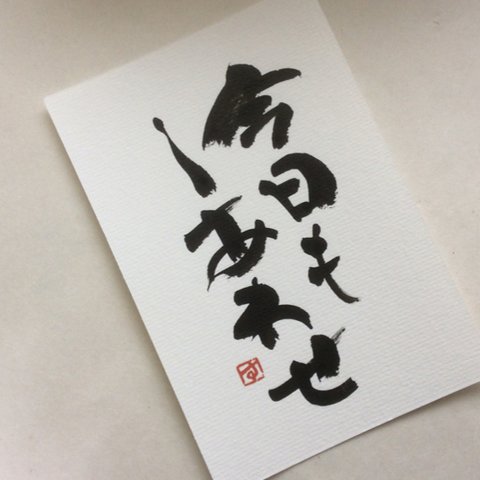 今日も
しあわせ